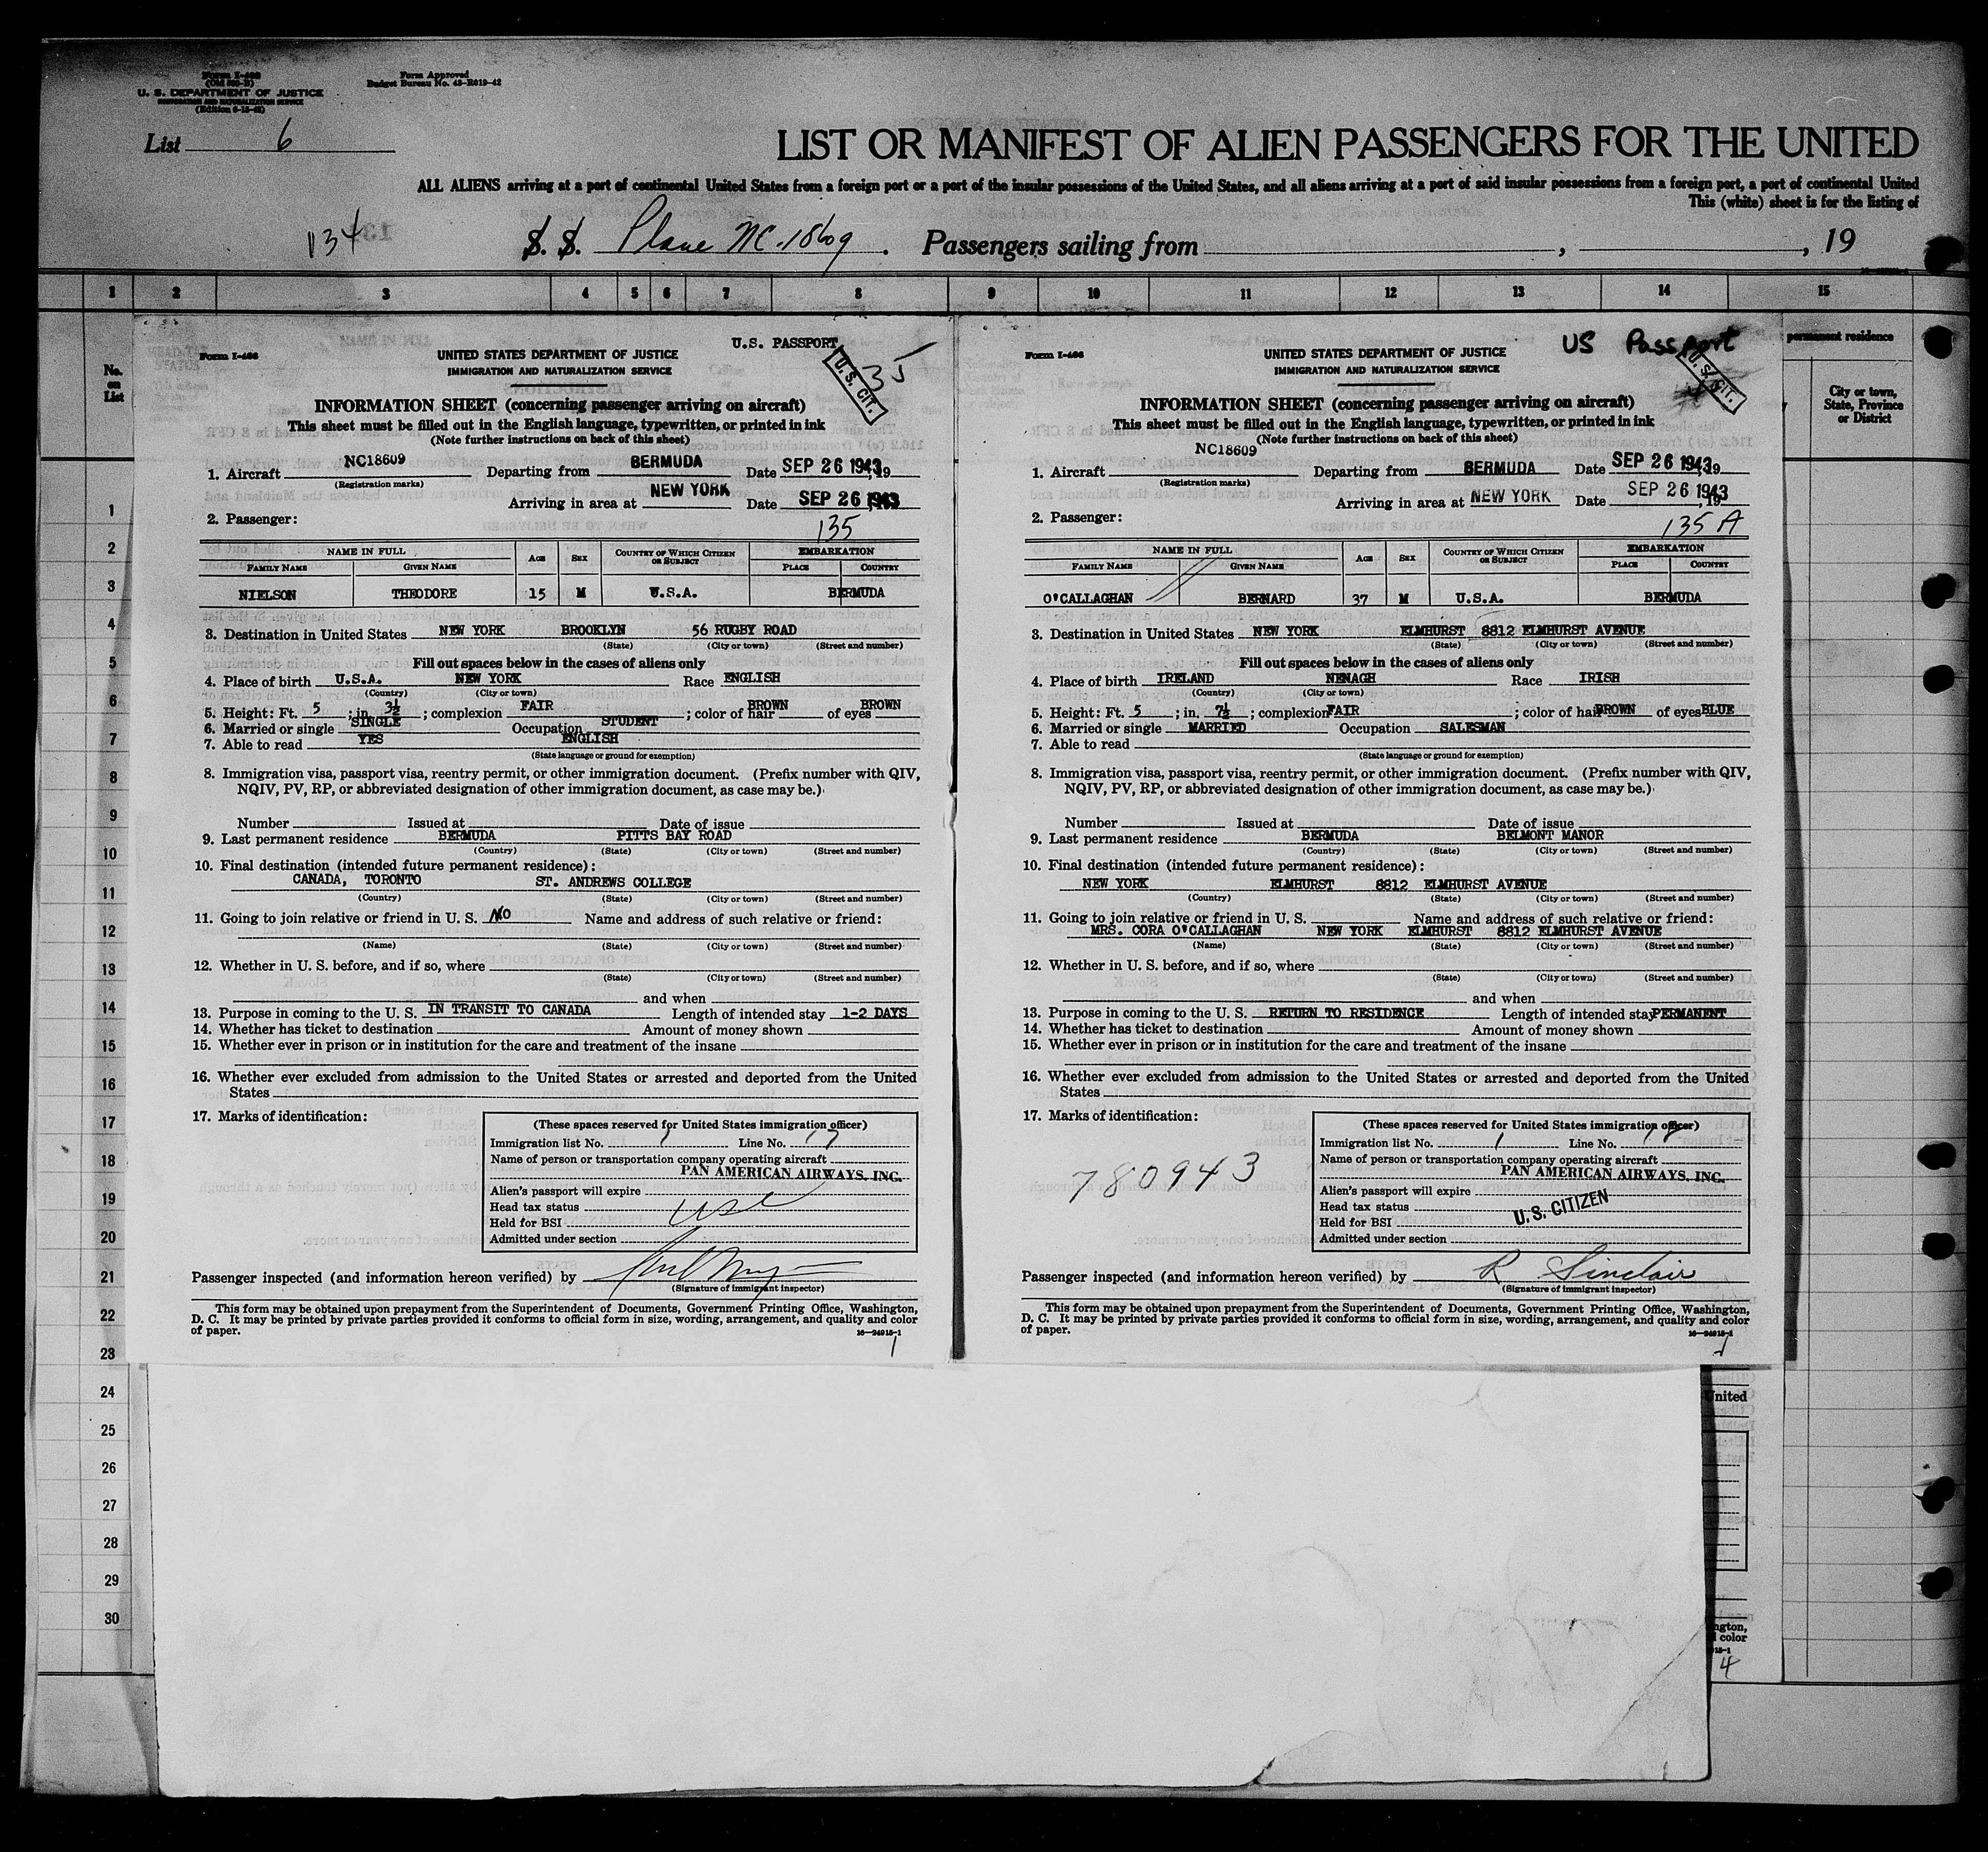 Form I-466
(Old 500-B)
U. S. DEPARTMENT OF JUSTICE
IMMIGRATION AND NATURALIZATION SERVICE
(Edition 6-15-42)
Form Approved
Budget Bureau No. 43-R019-42
List 6
LIST OR MANIFEST OF ALIEN PASSENGERS FOR THE UNITED
ALL ALIENS arriving at a port of continental United States from a foreign port or a port of the insular possessions of the United States, and all aliens arriving at a port of said insular possessions from a foreign port, a port of continental United
This (white) sheet is for the listing of
134 S. S. Plane NC-18609. Passengers sailing from , , 19
1 2 3 4 5 6 7 8 9 10 11 12 13 14 15
No. on List
permanent residence
City or town, State, Province or District
1
2
3
4
5
6
7
8
9
10
11
12
13
14
15
16
17
18
19
20
21
22
23
24
25
26
27
28
29
30
Form I-466
U.S. PASSPORT
U.S. CIT.
35
UNITED STATES DEPARTMENT OF JUSTICE
IMMIGRATION AND NATURALIZATION SERVICE
INFORMATION SHEET (concerning passenger arriving on aircraft)
This sheet must be filled out in the English language, typewritten, or printed in ink
(Note further instructions on back of this sheet)
1. Aircraft NC18609 Departing from BERMUDA Date SEP 26 1943, 19
(Registration marks)
Arriving in area at NEW YORK Date SEP 26 1943
2. Passenger: 135
NAME IN FULL AGE SEX COUNTRY OF WHICH CITIZEN OR SUBJECT EMBARKATION
FAMILY NAME GIVEN NAME PLACE COUNTRY
NIELSON THEODORE 15 M U.S.A. BERMUDA
3. Destination in United States NEW YORK BROOKLYN 56 RUGBY ROAD
(State) (City or town) (Street and number)
Fill out spaces below in the cases of aliens only
4. Place of birth U.S.A. NEW YORK Race ENGLISH
(Country) (City or town)
5. Height: Ft. 5 ; in. 3½ ; complexion FAIR ; color of hair BROWN of eyes BROWN
6. Married or single SINGLE Occupation STUDENT
7. Able to read YES ENGLISH
(State language or ground for exemption)
8. Immigration visa, passport visa, reentry permit, or other immigration document. (Prefix number with QIV,
NQIV, PV, RP, or abbreviated designation of other immigration document, as case may be.)
Number Issued at Date of issue
9. Last permanent residence BERMUDA PITTS BAY ROAD
(Country) (State) (City or town) (Street and number)
10. Final destination (intended future permanent residence):
CANADA, TORONTO ST. ANDREWS COLLEGE
(Country) (State) (City or town) (Street and number)
11. Going to join relative or friend in U. S. NO Name and address of such relative or friend:
(Name) (State) (City or town) (Street and number)
12. Whether in U. S. before, and if so, where
(State) (City or town) (Street and number)
and when
13. Purpose in coming to the U. S. IN TRANSIT TO CANADA Length of intended stay 1-2 DAYS
14. Whether has ticket to destination Amount of money shown
15. Whether ever in prison or in institution for the care and treatment of the insane
16. Whether ever excluded from admission to the United States or arrested and deported from the United
States
17. Marks of identification:
(These spaces reserved for United States immigration officer)
Immigration list No. 1 Line No. 17
Name of person or transportation company operating aircraft
PAN AMERICAN AIRWAYS, INC.
Alien's passport will expire
Head tax status USC
Held for BSI
Admitted under section
Passenger inspected (and information hereon verified) by
(Signature of immigrant inspector)
This form may be obtained upon prepayment from the Superintendent of Documents, Government Printing Office, Washington,
D. C. It may be printed by private parties provided it conforms to official form in size, wording, arrangement, and quality and color
of paper.
16-24915-1
1
Form I-466
US Passport
U.S. CIT.
UNITED STATES DEPARTMENT OF JUSTICE
IMMIGRATION AND NATURALIZATION SERVICE
INFORMATION SHEET (concerning passenger arriving on aircraft)
This sheet must be filled out in the English language, typewritten, or printed in ink
(Note further instructions on back of this sheet)
1. Aircraft NC18609 Departing from BERMUDA Date SEP 26 1943, 19
(Registration marks)
Arriving in area at NEW YORK Date SEP 26 1943, 19
2. Passenger: 135 A
NAME IN FULL AGE SEX COUNTRY OF WHICH CITIZEN OR SUBJECT EMBARKATION
FAMILY NAME GIVEN NAME PLACE COUNTRY
O'CALLAGHAN BERNARD 37 M U.S.A. BERMUDA
3. Destination in United States NEW YORK ELMHURST 8812 ELMHURST AVENUE
(State) (City or town) (Street and number)
Fill out spaces below in the cases of aliens only
4. Place of birth IRELAND NENAGH Race IRISH
(Country) (City or town)
5. Height: Ft. 5 ; in. 7½ ; complexion FAIR ; color of hair BROWN of eyes BLUE
6. Married or single MARRIED Occupation SALESMAN
7. Able to read
(State language or ground for exemption)
8. Immigration visa, passport visa, reentry permit, or other immigration document. (Prefix number with QIV,
NQIV, PV, RP, or abbreviated designation of other immigration document, as case may be.)
Number Issued at Date of issue
9. Last permanent residence BERMUDA BELMONT MANOR
(Country) (State) (City or town) (Street and number)
10. Final destination (intended future permanent residence):
NEW YORK ELMHURST 8812 ELMHURST AVENUE
(Country) (State) (City or town) (Street and number)
11. Going to join relative or friend in U. S. Name and address of such relative or friend:
MRS. CORA O'CALLAGHAN NEW YORK ELMHURST 8812 ELMHURST AVENUE
(Name) (State) (City or town) (Street and number)
12. Whether in U. S. before, and if so, where
(State) (City or town) (Street and number)
and when
13. Purpose in coming to the U. S. RETURN TO RESIDENCE Length of intended stay PERMANENT
14. Whether has ticket to destination Amount of money shown
15. Whether ever in prison or in institution for the care and treatment of the insane
16. Whether ever excluded from admission to the United States or arrested and deported from the United
States
17. Marks of identification:
780943
(These spaces reserved for United States immigration officer)
Immigration list No. 1 Line No. 18
Name of person or transportation company operating aircraft
PAN AMERICAN AIRWAYS, INC.
Alien's passport will expire
Head tax status U.S. CITIZEN
Held for BSI
Admitted under section
Passenger inspected (and information hereon verified) by R Sinclair
(Signature of immigrant inspector)
This form may be obtained upon prepayment from the Superintendent of Documents, Government Printing Office, Washington,
D. C. It may be printed by private parties provided it conforms to official form in size, wording, arrangement, and quality and color
of paper.
16-24915-1
1
United
ngton,
color
15-1
4